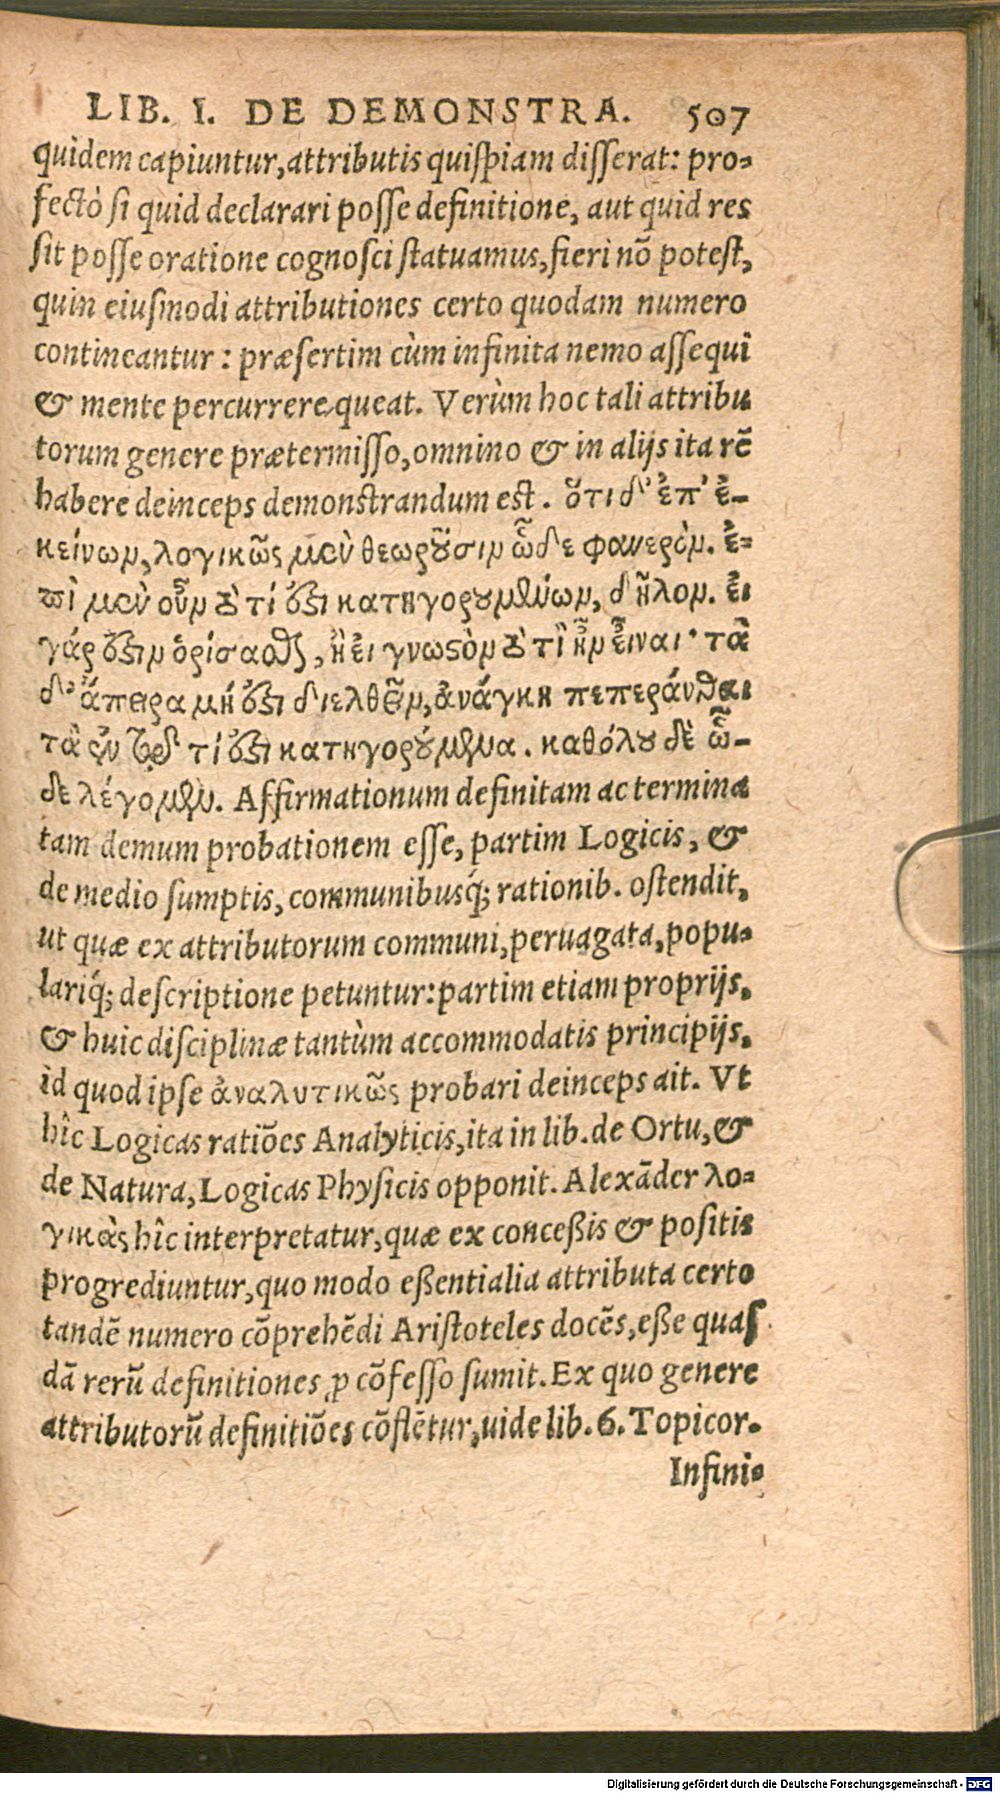 LIB. I. DE DEMONSTRA. 507
quidem capiuntur, attributis quiſpiam diſſerat: pro-
fectò ſi quid declarari poſſe definitione, aut quid res
ſit poſſe oratione cognoſci ſtatuamus, fieri nō poteſt,
quin eiuſmodi attributiones certo quodam numero
contineantur: præſertim cùm infinita nemo aſſequi
& mente percurrere queat. Verùm hoc tali attribu
torum genere prætermiſſo, omnino & in alijs ita rē
habere deinceps demonſtrandum eſt. ὅτι δ' ἐπ' ἐ-
κείνωμ, λογικῶς μὲν θεωροῦσιμ ὧδε φανερὸμ. ἐ-
πὶ μὲν οὖμ τῶ τί ἐστι κατηγορουμένωμ, δῆλομ. ἐι
γάρ ἐστιμ ὁρίσασθαι, ἢ ἐι γνωστὸμ τὸ τί ἦμ εἶναι· τὰ
δ' ἄπειρα μή ἐστι διελθεῖμ, ἀνάγκη πεπεράνθαι
τὰ ἐν τῶ τί ἐστι κατηγορούμενα. καθόλου δὲ ὧ-
δε λέγομεν. Affirmationum definitam ac termina
tam demum probationem eſſe, partim Logicis, &
de medio ſumptis, communibusq́; rationib. oſtendit,
ut quæ ex attributorum communi, peruagata, popu-
lariq́; deſcriptione petuntur: partim etiam proprijs,
& huic diſciplinæ tantùm accommodatis principijs,
id quod ipſe ἀναλυτικῶς probari deinceps ait. Vt
hîc Logicas ratiōes Analyticis, ita in lib. de Ortu, &
de Natura, Logicas Phyſicis opponit. Alexāder λο-
γικὰς hîc interpretatur, quæ ex conceßis & poſitis
progrediuntur, quo modo eßentialia attributa certo
tandē numero cōprehēdi Ariſtoteles docēs, eße quaſ
dā rerū definitiones ꝓ cōfeſſo ſumit. Ex quo genere
attributorū definitiōes cōflētur, uide lib. 6. Topicor.
Infini-
Digitalisierung gefördert durch die Deutsche Forschungsgemeinschaft - DFG